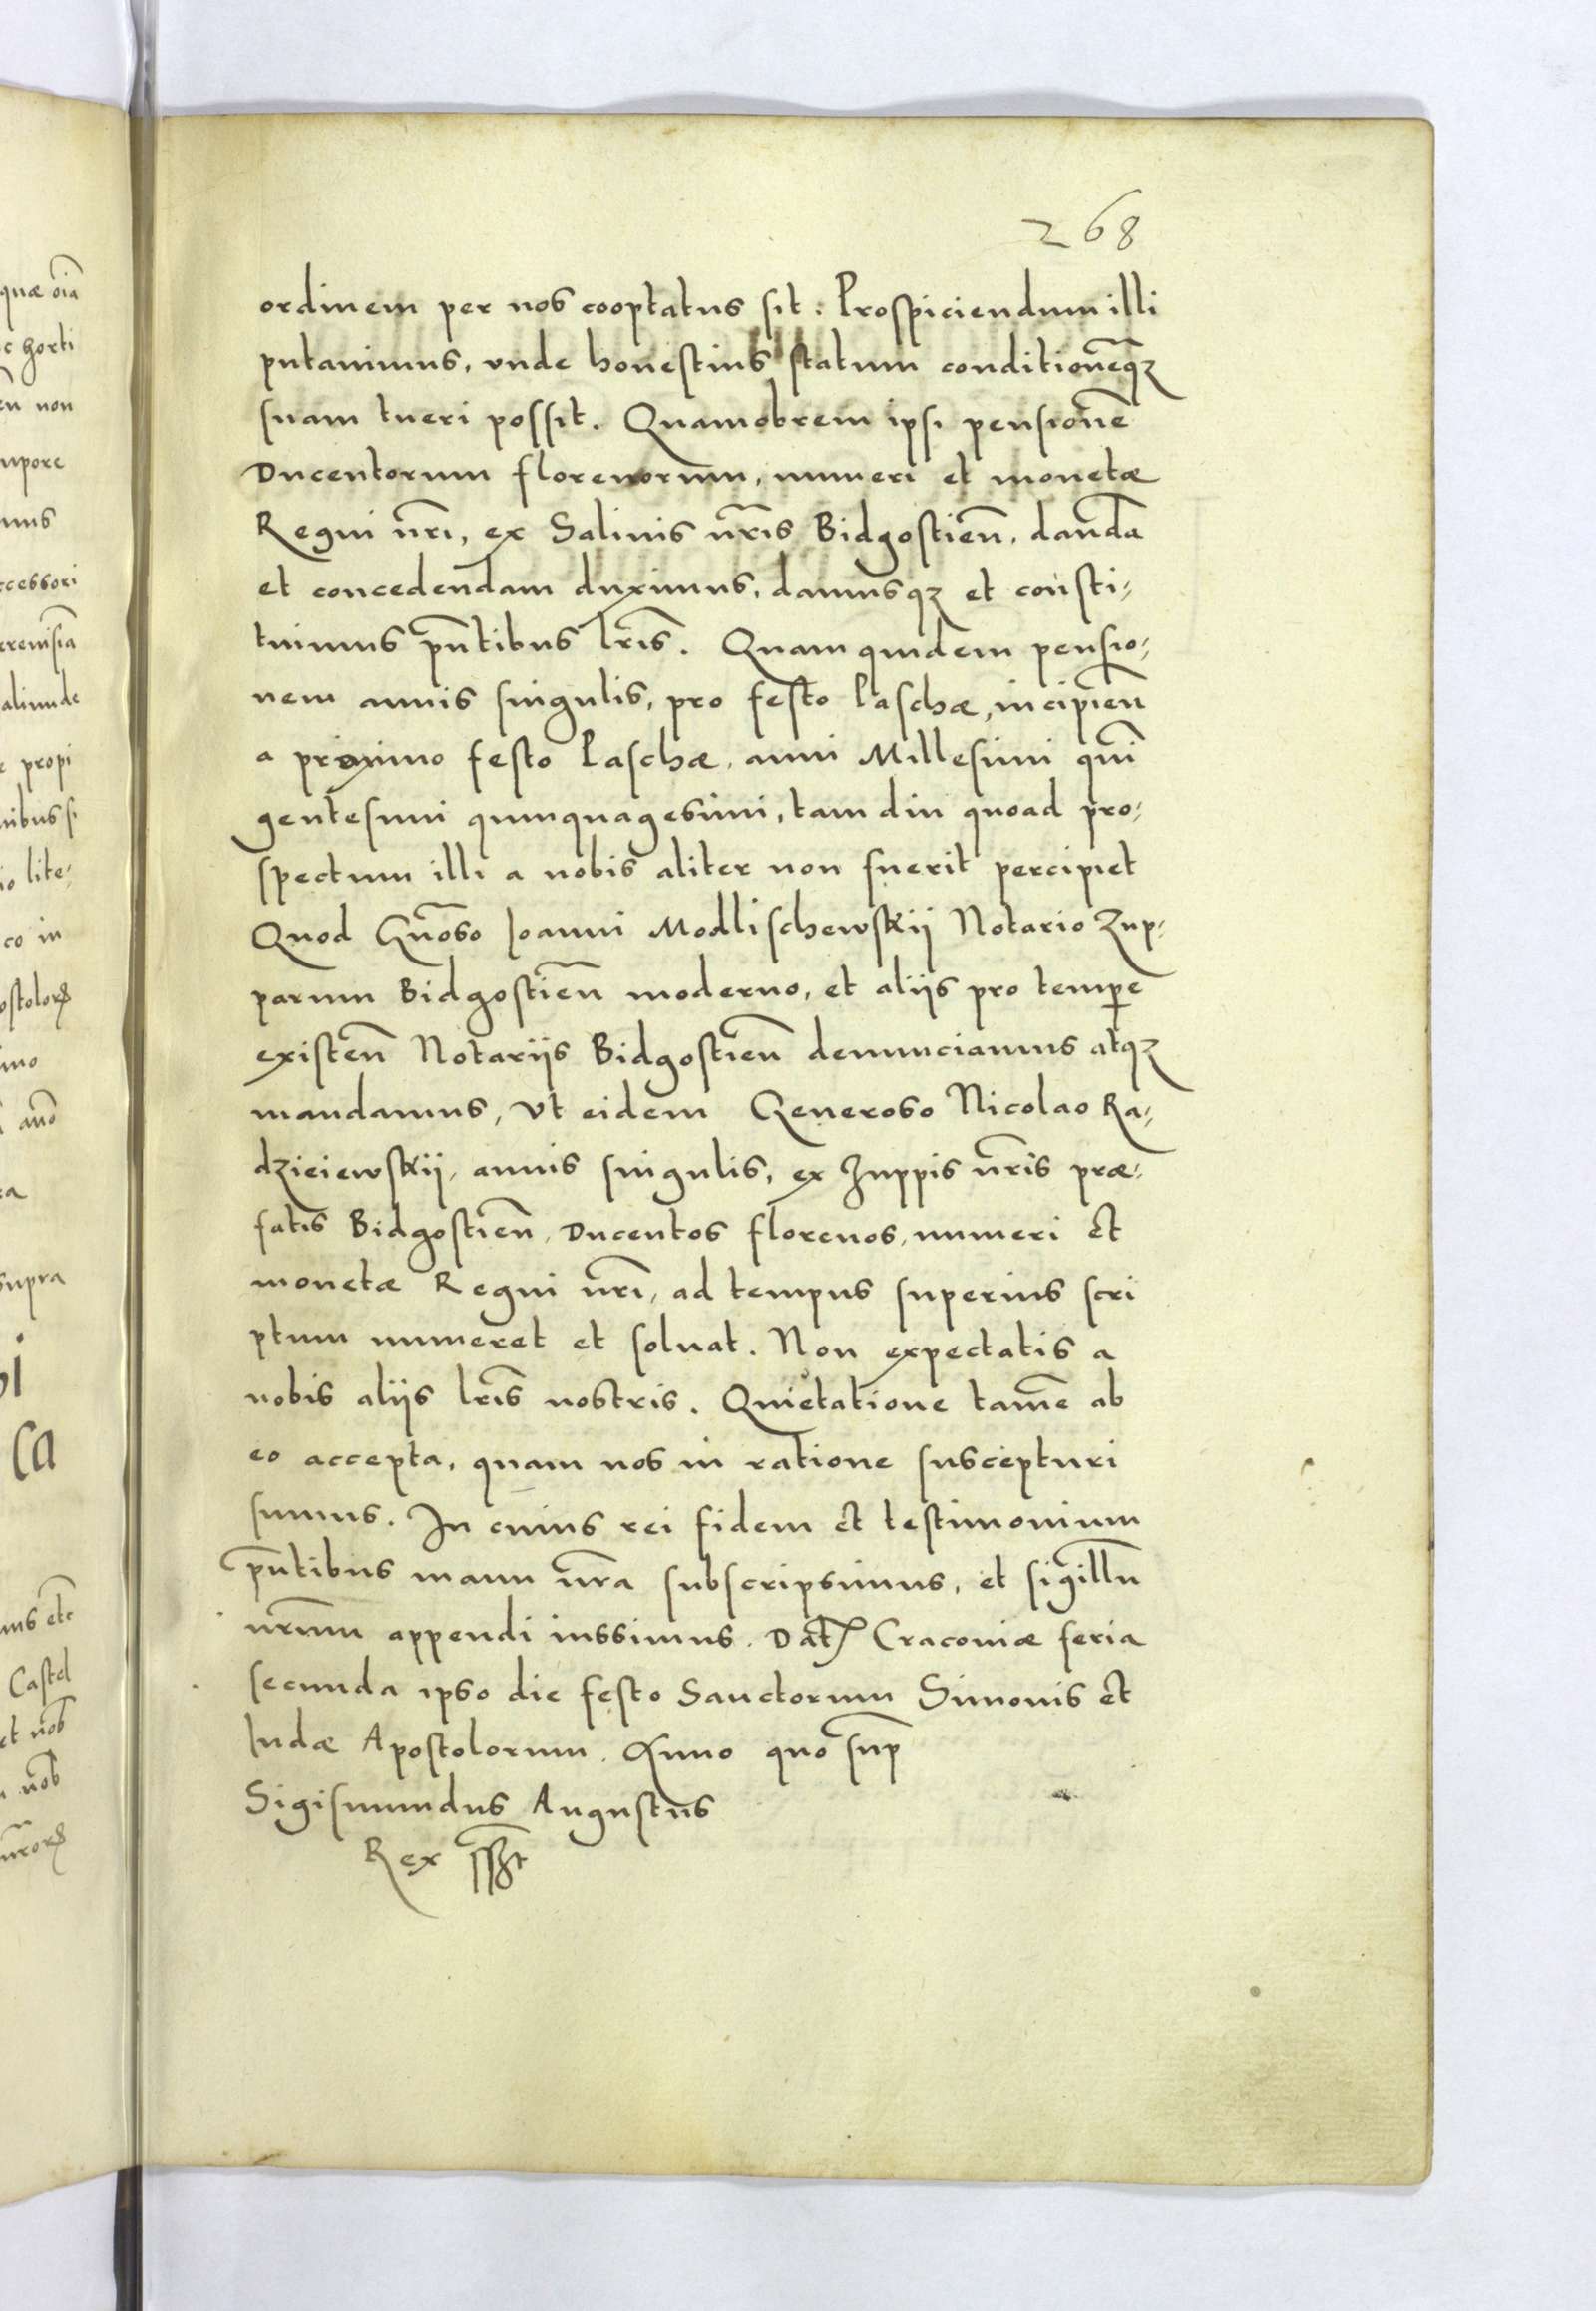 268
ordinem per nos cooptatus sit: Prospiciendum illi
putavimus, unde honestius statum conditionḗqȝ
suam tueri possit. Quamobrem ipsi pensionē
Ducentorum florenorum, numeri et monetæ
Regni nr̄i, ex Salinis nr̄is Bidgostien̄. dandā
et concedendam duximus, damusqȝ et consti-
tuimus pn̄tibus lr̄is. Quam quidem pensio-
nem annis singulis, pro festo Paschæ, incipien̄
a proximo festo Paschæ, anni Millesimi quin̄
gentesimi quinquagesimi, tam diu quoad pro-
spectum illi a nobis aliter non fuerit percipiet
Quod Gn̄oso Joanni Modlischewskij Notario Zup-
parum Bidgostien̄ moderno, et aliis pro tempe
existen̄ Notariis Bidgostien̄ denunciamus atqȝ
mandamus, Ut eidem Generoso Nicolao Ra-
dzieiewskij, annis singulis, ex Zuppis nr̄is præ-
fatis Bidgostien̄, Ducentos florenos, numeri et
monetæ Regni nr̄i, ad tempus superius scri
ptum numeret et solvat. Non expectatis a
nobis aliis lr̄is nostris. Quietatione tamē ab
eo accepta, quam nos in ratione suscepturi
sumus. In cuius rei fidem et testimonium
pn̄tibus manu nr̄a subscripsimus, et sigillū
nr̄um appendi iussimus. Dat Cracoviæ feria
secunda ipso die festo Sanctorum Simonis et
Judæ Apostolorum. Anno quo sup̄
Sigismundus Augustus
Rex sszt
quæ oīa
c horti
ēn non
mpore
mus
ccessori
alimude
e propi
nibus si
io lite-
co in
ino
anō
ra
supra
ca
mus etc
Castel
et nob̄
nob̄